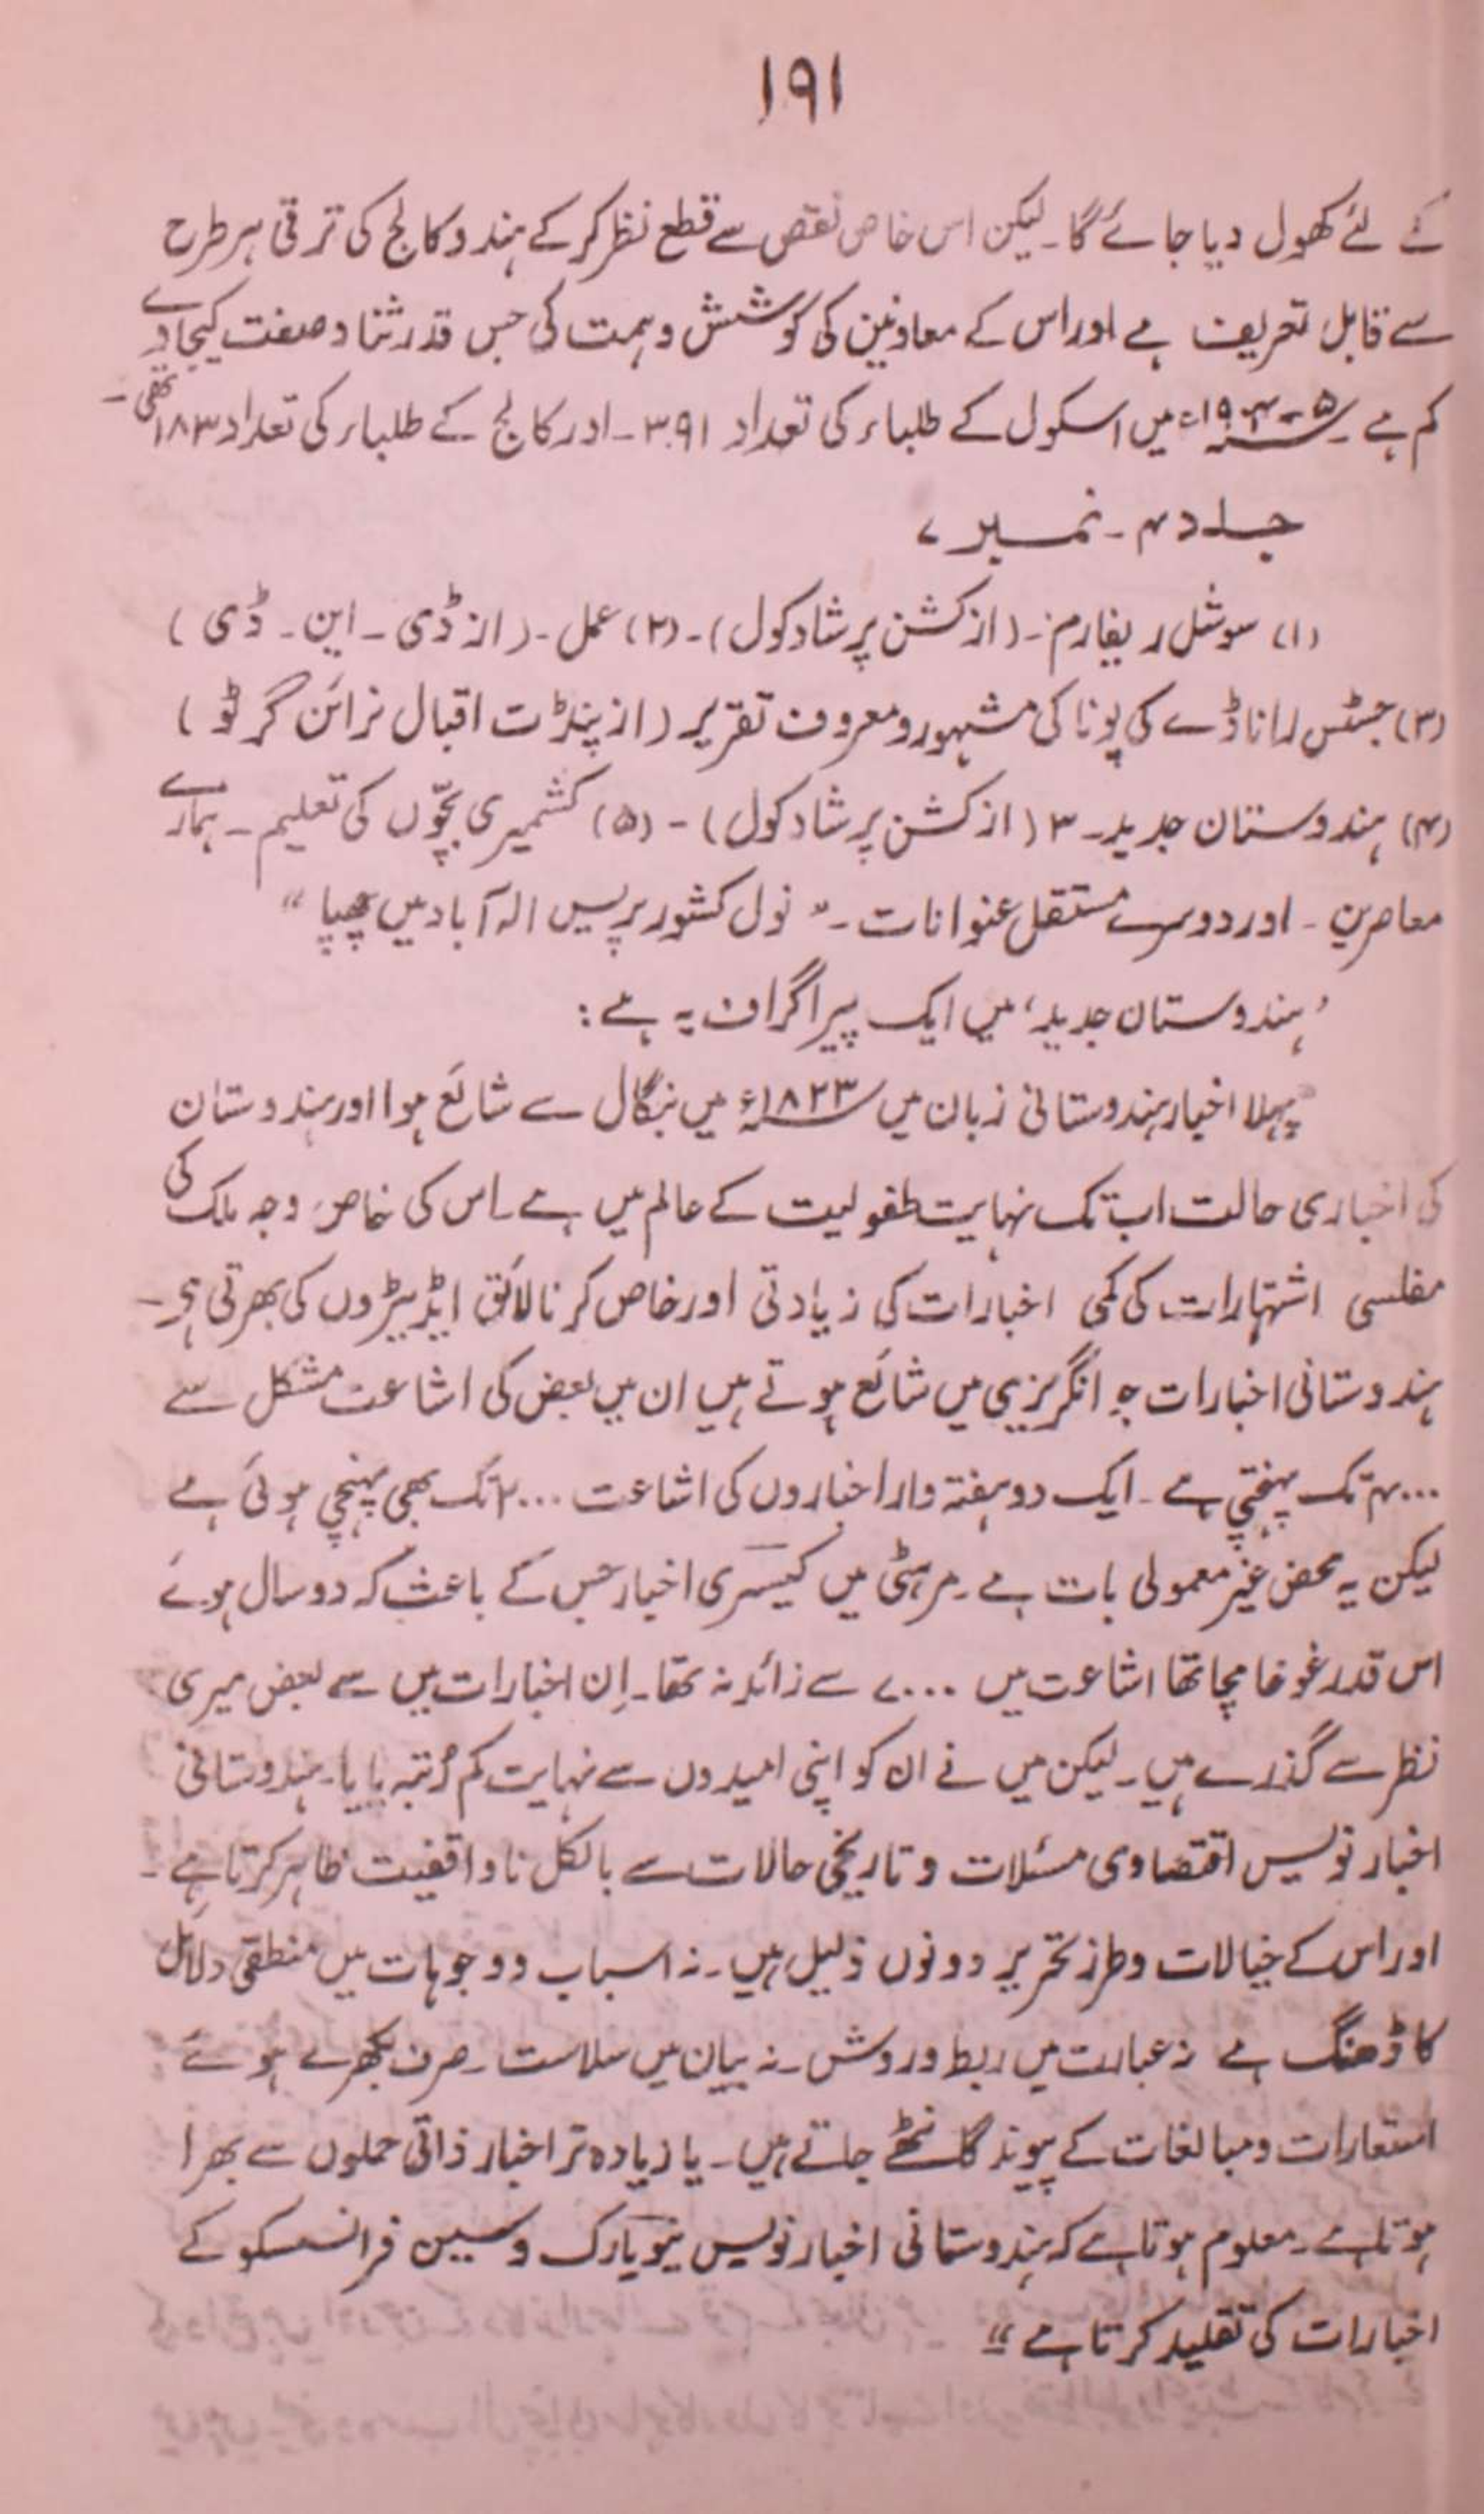 ۱۹۱
کے لئے کھول دیا جائے گا۔ لیکن اس خاص نقص سے قطع نظر کر کے ہندو کالج کی ترقی ہر طرح
سے قابل تعریف ہے اور اس کے معاونین کی کوشش و ہمت کی جس قدر ثنا و صفت کیجاوے
کم ہے۔ ۵-۱۹۰۴ء میں اسکول کے طلباء کی تعداد ۳۹۱۔ اور کالج کے طلباء کی تعداد ۱۸۳ تھی۔
جلد ۴۔ نمبر ۷
(۱) سوشل ریفارم۔ (از کشن پرشاد کول)۔ (۲) عمل۔ (از ڈی۔ این۔ ڈی)
(۳) جسٹس راناڈے کی پونا کی مشہور و معروف تقریر (از پنڈت اقبال نرائن گرٹو)
(۴) ہندوستان جدید۔ ۳ (از کشن پرشاد کول)۔ (۵) کشمیری بچّوں کی تعلیم۔ ہمارے
معاصرین۔ اور دوسرے مستقل عنوانات۔ " نول کشور پریس الہ آباد میں چھپا "
'ہندوستان جدید' میں ایک پیراگراف یہ ہے:
"پہلا اخبار ہندوستانی زبان میں ۱۸۲۳ء میں بنگال سے شائع ہوا اور ہندوستان
کی اخباری حالت اب تک نہایت طفولیت کے عالم میں ہے۔ اس کی خاص وجہ ملک کی
مفلسی اشتہارات کی کمی اخبارات کی زیادتی اور خاص کر نالائق ایڈیٹروں کی بھرتی ہے۔
ہندوستانی اخبارات جو انگریزی میں شائع ہوتے ہیں ان میں بعض کی اشاعت مشکل سے
۴۰۰۰ تک پہنچتی ہے۔ ایک دو ہفتہ وار اخباروں کی اشاعت ۲۰۰۰ تک بھی پہنچی ہوئی ہے
لیکن یہ محض غیر معمولی بات ہے۔ مرہٹی میں کیسری اخبار جس کے باعث کہ دو سال ہوئے
اس قدر غوغا مچا تھا اشاعت میں ۷۰۰۰ سے زائد نہ تھا۔ اِن اخبارات میں سے بعض میری
نظر سے گذرے ہیں۔ لیکن میں نے ان کو اپنی امیدوں سے نہایت کم رُتبہ پایا۔ ہندوستانی
اخبار نویس اقتصادی مسئلات و تاریخی حالات سے بالکل ناواقفیت ظاہر کرتا ہے۔
اور اس کے خیالات و طرز تحریر دونوں ذلیل ہیں۔ نہ اسباب و وجوہات میں منطقی دلائل
کا ڈھنگ ہے نہ عبارت میں ربط و روش۔ نہ بیان میں سلاست۔ صرف بکھرے ہوئے
استعارات و مبالغات کے پیوند گانٹھے جاتے ہیں۔ یا زیادہ تر اخبار ذاتی حملوں سے بھرا
ہوتا ہے۔ معلوم ہوتا ہے کہ ہندوستانی اخبار نویس نیویارک و سین فرانسسکو کے
اخبارات کی تقلید کرتا ہے"